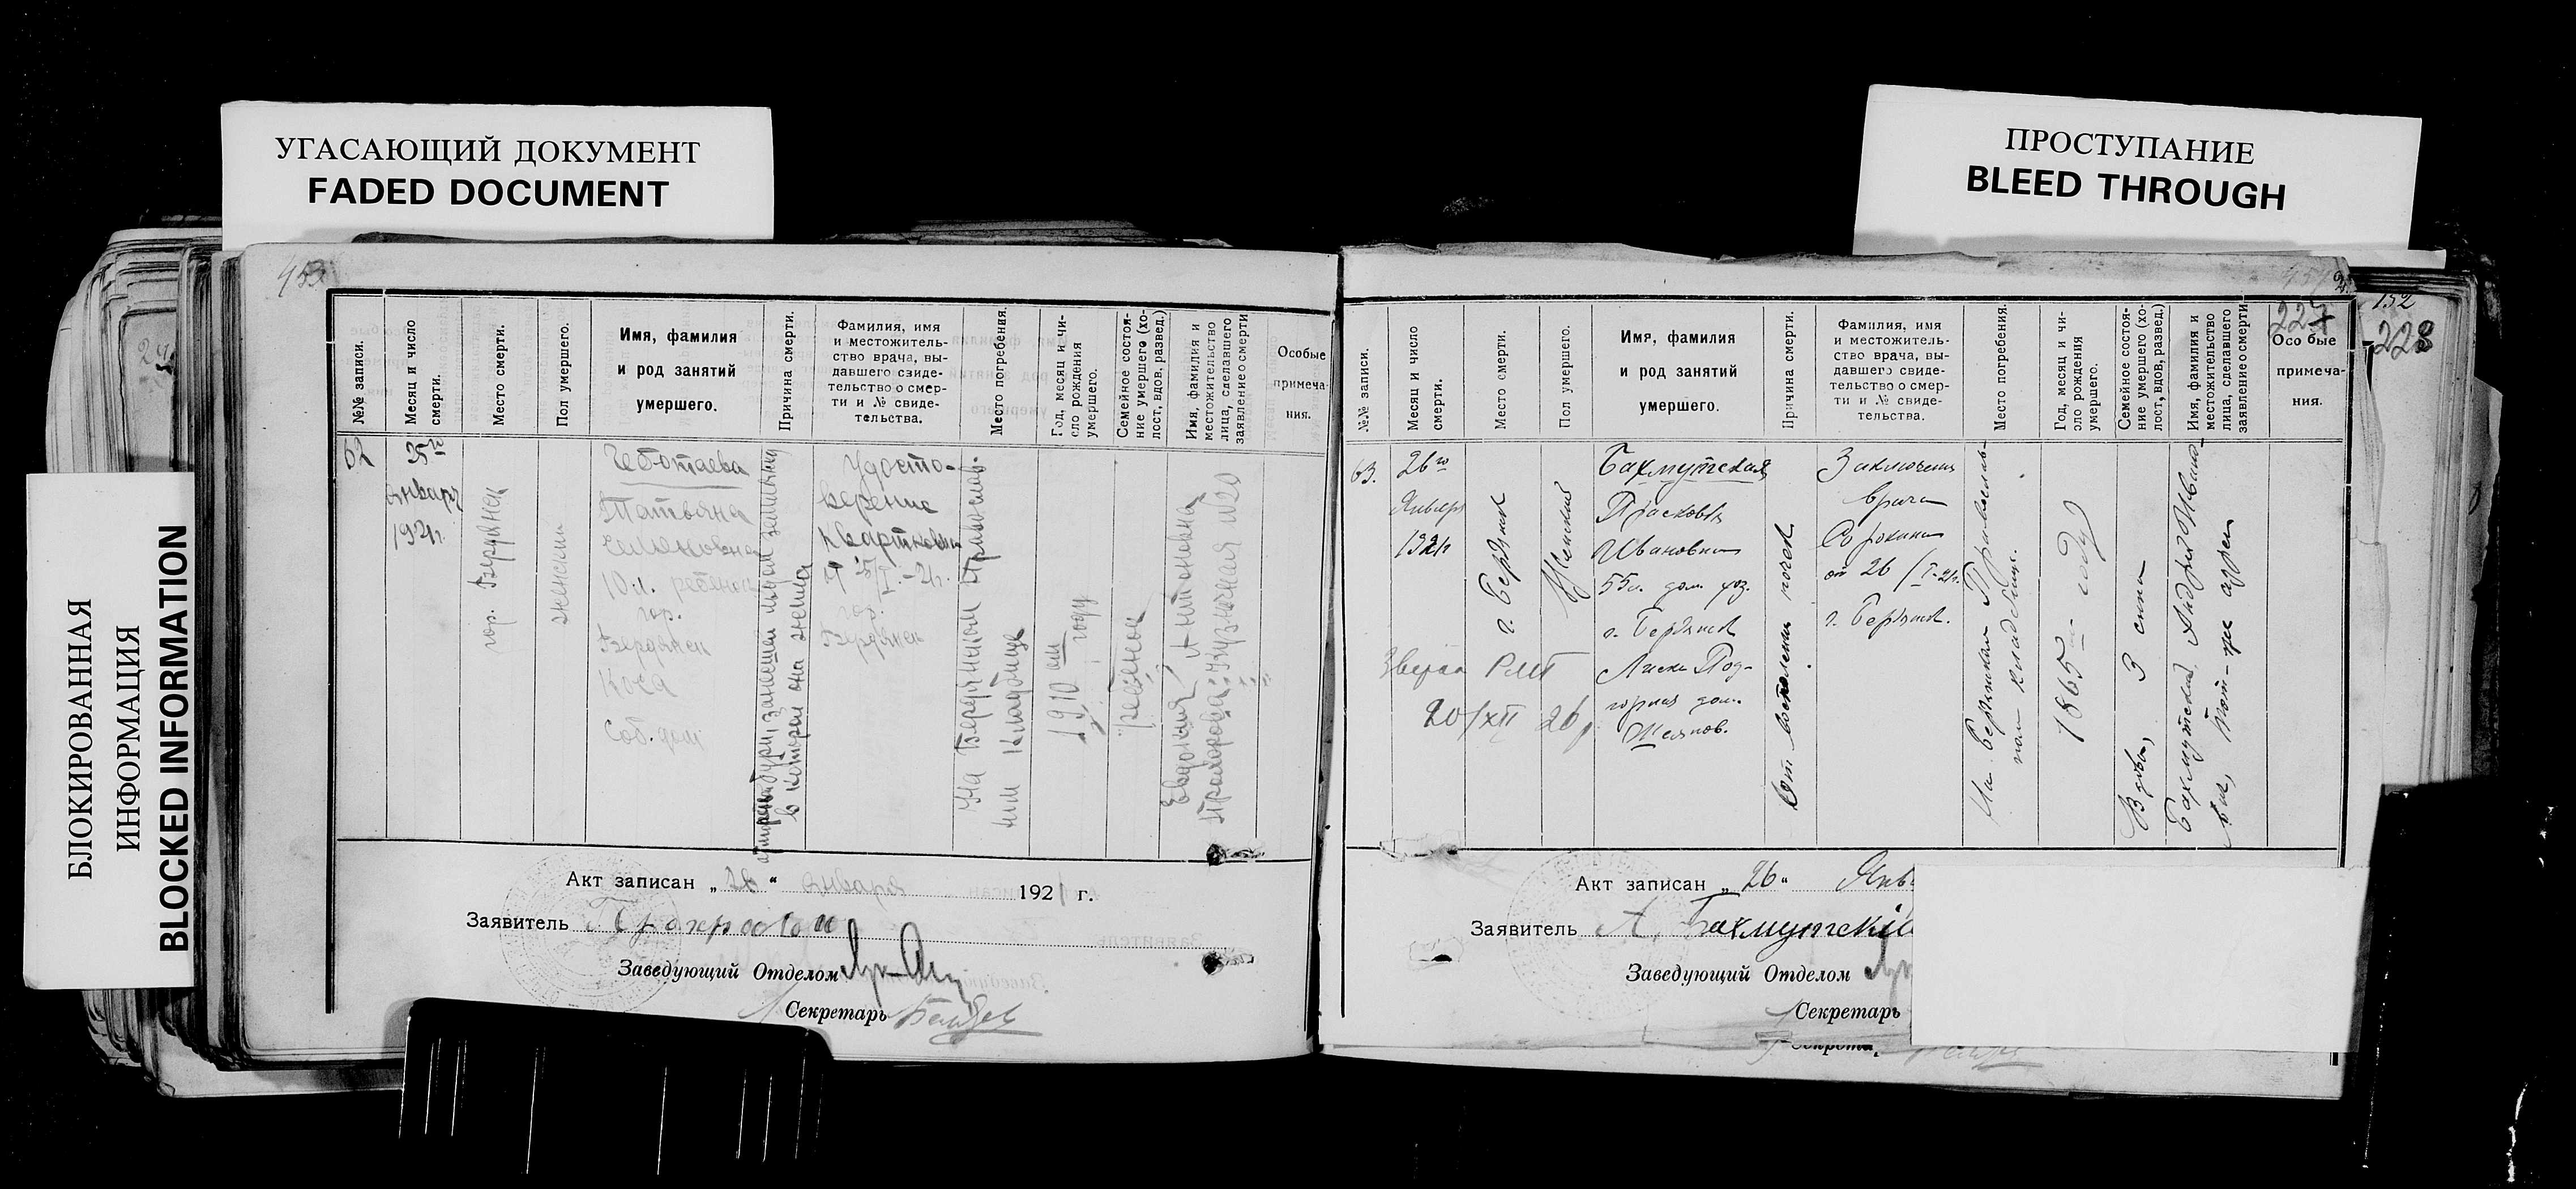 УГАСАЮЩИЙ ДОКУМЕНТ
FADED DOCUMENT
ПРОСТУПАНИЕ
BLEED THROUGH
БЛОКИРОВАННАЯ
ИНФОРМАЦИЯ
BLOCKED INFORMATION
453
№№ записи.
Месяц и число
смерти.
Место смерти.
Пол умершего.
Имя, фамилия
и род занятий
умершего.
Причина смерти.
Фамилия, имя
и местожитель-
ство врача, вы-
давшего свиде-
тельство о смер-
ти и № свиде-
тельства.
Место погребения.
Год, месяц и чи-
сло рождения
умершего.
Семейное состоя-
ние умершего (хо-
лост, вдов, развед.)
Имя, фамилия и
местожительство
лица, сделавшего
заявление о смерти
Особые
примеча-
ния.
62
25го
января
1921г.
гор. Бердянск
женский
Чеботаева
Татьяна
Семеновна
10 л. ребенок
гор.
Бердянск
Коса
Соб. дом
в которой она жила
Удосто-
верение
от 25/I-21г.
гор.
Бердянск
На Бердянском Православ-
ном кладбище
1910 ом
году
ребенок
Евдокия Антоновна
Прохорова
Акт записан „26“ января 1921 г.
Заявитель
Заведующий Отделом
Секретарь
227
152
228
№№ записи.
Месяц и число
смерти.
Место смерти.
Пол умершего.
Имя, фамилия
и род занятий
умершего.
Причина смерти.
Фамилия, имя
и местожитель-
ство врача, вы-
давшего свиде-
тельство о смер-
ти и № свиде-
тельства.
Место погребения.
Год, месяц и чи-
сло рождения
умершего.
Семейное состоя-
ние умершего (хо-
лост, вдов, развед.)
Имя, фамилия и
местожительство
лица, сделавшего
заявление о смерти
Особые
примеча-
ния.
63.
26го
Января
1921г
г. Бердянск
Женский
Бахмутская
Прасковья
Ивановна
55л. дом. хоз.
г. Бердянск
Лиски Под-
горная дом
От воспаления почек
Заключение
врача
Сорокина
от 26/I-21г.
г. Бердянск.
На Бердянском Православ-
ном кладбище.
1865 году
Вдова, 3 сына
Бахмутский Андрей Ивано-
вич, тот-же адрес
20/XII 26
Акт записан „26“ Янв
Заявитель А. Бахмутский
Заведующий Отделом
Секретарь